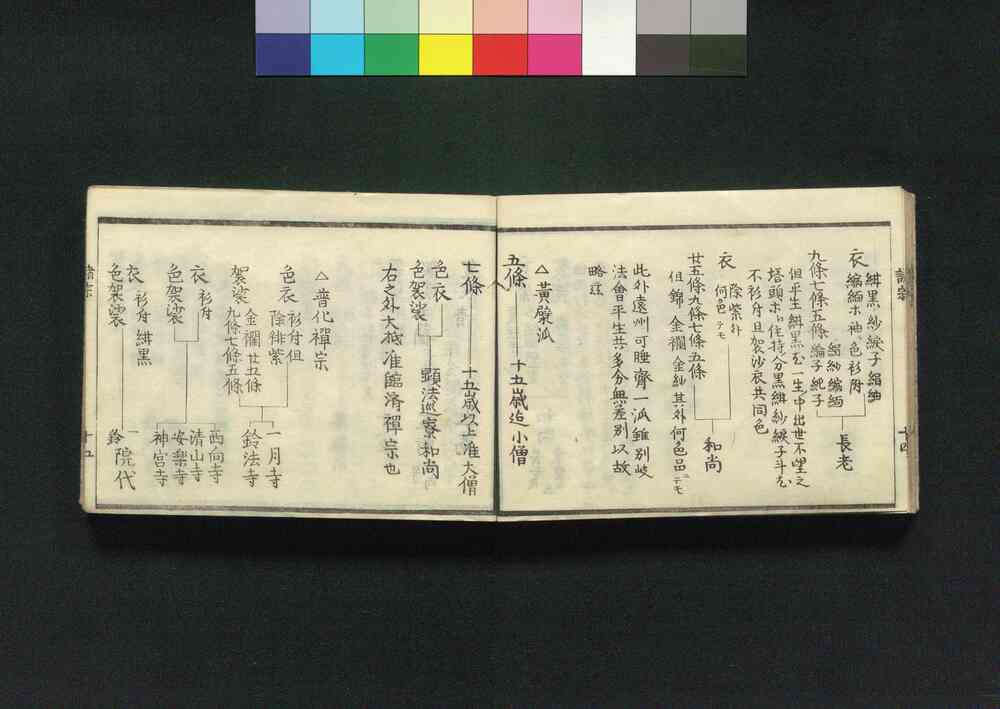 緋黒紗綾子絹紬
衣
編緬ホ袖色衫附
九條七條五條
絽紗編緬
綸子紀子
長老
但平生緋黒也一生中出世不望之
塔頭ホ住持分黒緋紗綾子斗也
不衫付且袈沙衣共同色
衣
除紫外
何色ニテモ
廿五條九條七條五條
但錦金襴金紗其外何色品ニテモ
和尚
此外遠州可睡齊一派雖別岐
法會平生共多分無差別以故
略註
△黄檗派
五條
十五歳迠小僧
七條
十五歳以上准大僧
色衣
色袈裟
顕法巡寮和尚
右之外大抵准臨済禅宗也
△普化禅宗
色衣
衫付但
除緋紫
袈裟
金襴廿五條
九條七條五條
一月寺
鈴法寺
衣
衫付
色袈裟
西向寺
清山寺
安楽寺
神宮寺
衣
衫付緋黒
色袈裟
一
鈴
院代
諸宗
十四
諸宗
十五